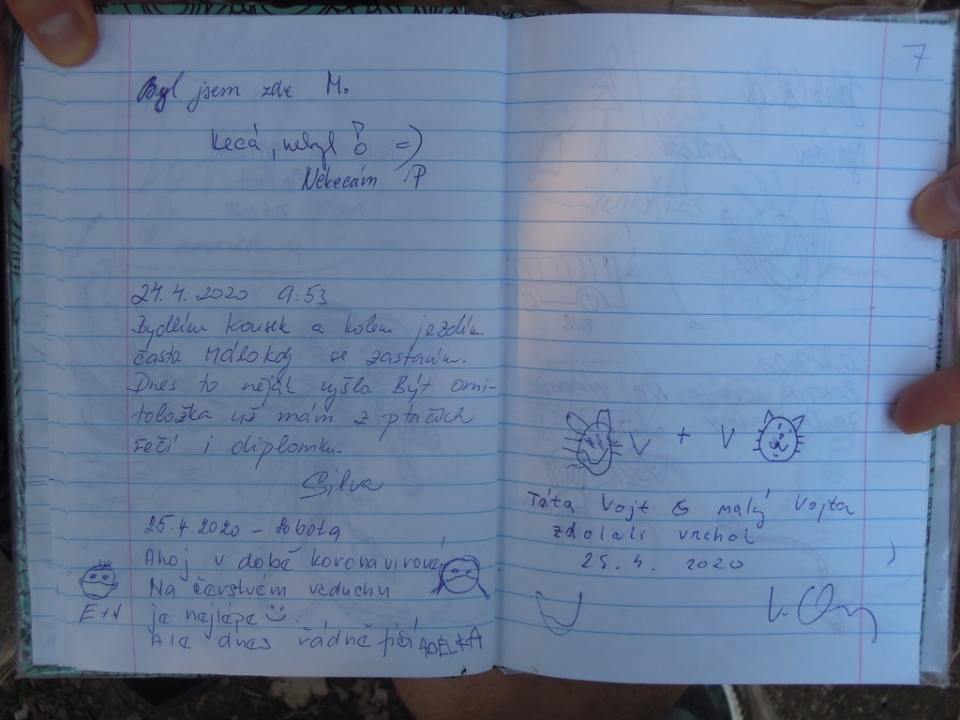 Byl jsem zde M.
Kecá, nebyl! =)
Nekecám :P
24.4.2020 9:53
Bydlím kousek a kolem jezdím
často Málokdy se zastavím.
Dnes to nějak vyšlo Být orni-
toložka už mám z ptačích
řečí i diplomku.
Silva
25.4.2020 - Sobota
Ahoj v době koronavirové,
Na čerstvém vzduchu
je nejlépe
Ale dnes řádně
ADÉLKA
7
V + V
Táta Vojt & malý Vojta
zdolali vrchol
25. 4. 2020